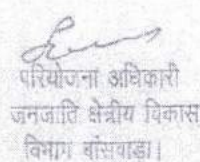 परियोजना अधिकारी
जनजाति क्षेत्रीय विकास
विभाग बांसवाड़ा।